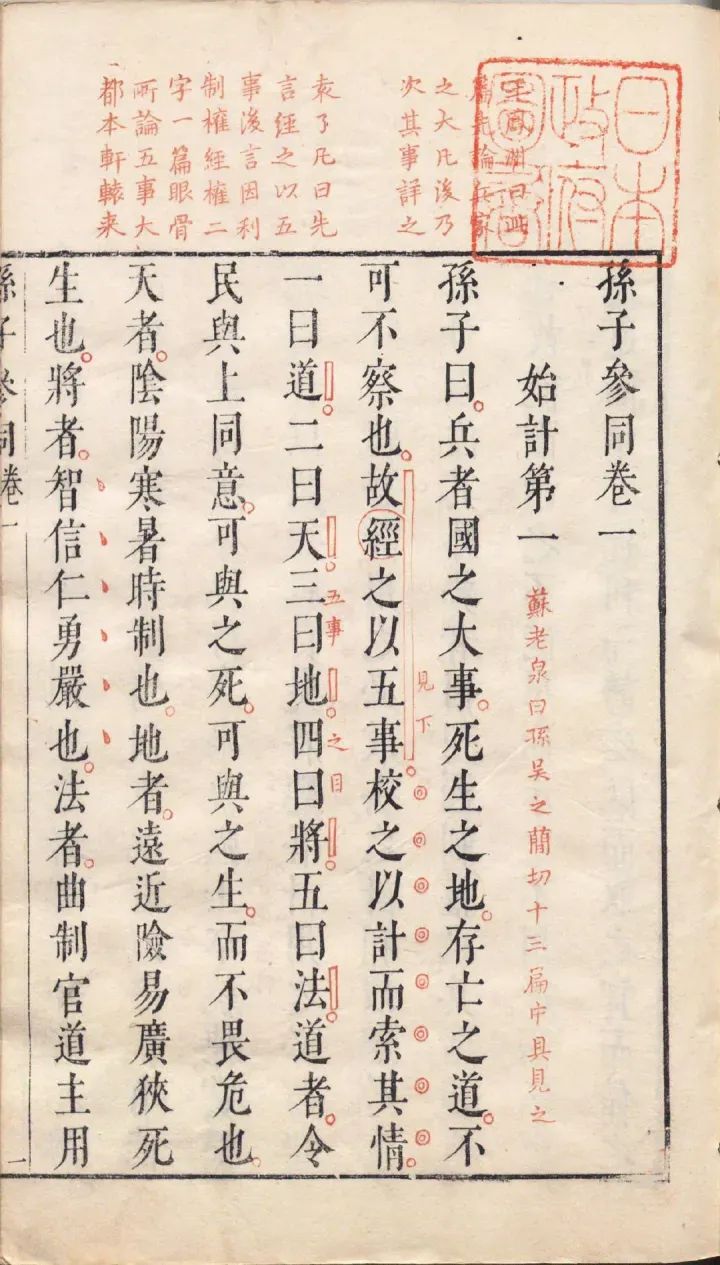 王鳳洲曰此
篇先論兵家
之大凡後乃
次其事詳之
袁了凡曰先
言經之以五
事後言因利
制權經權二
字一篇眼骨
所論五事大
都本軒轅来
日本
政府
圖書
孫子參同卷一
始計第一
蘇老泉曰孫吳之簡切十三扁中具見之
孫子曰兵者國之大事死生之地存亡之道不
可不察也故經之以五事校之以計而索其情
見下
一曰道二曰天三曰地四曰將五曰法道者令
五事之目
民與上同意可與之死可與之生而不畏危也
天者陰陽寒暑時制也地者遠近險易廣狹死
生也將者智信仁勇嚴也法者曲制官道主用
孫子參同卷一
一